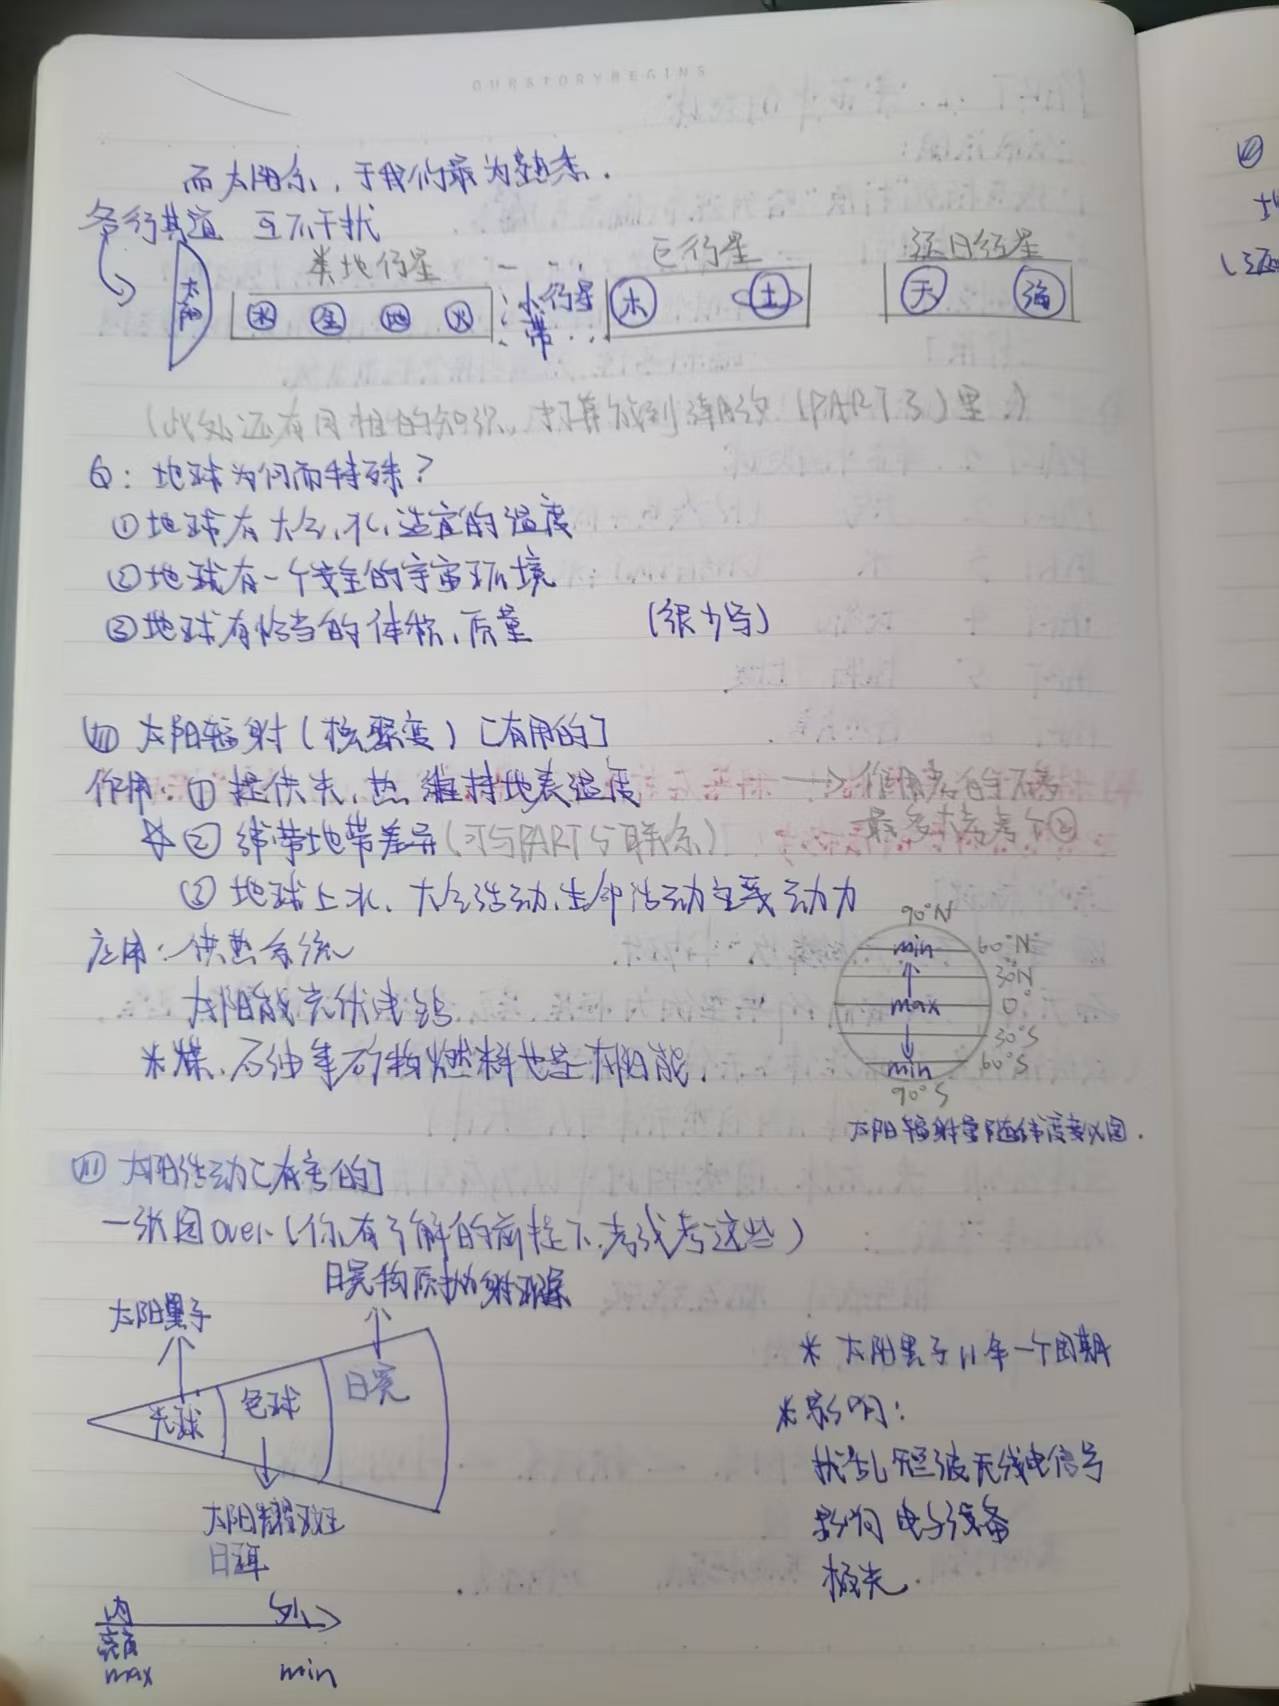 OURSTORYBEGINS
而太阳系，于我们最为熟悉．
各行其道 互不干扰
类地行星 巨行星 远日行星
太阳 水 金 地 火 小行星带 木 土 天 海
（此处还有自转的知识，打算放到 (PART 3) 里．）
Q：地球为何而特殊？
①地球有大气、水、适宜的温度
②地球有一个安全的宇宙环境
③地球有恰当的体积、质量 （很少写）
太阳辐射（核聚变）［有用的］
作用：①提供光、热，维持地表温度 → 作用考的全不考
☆② 纬带地带差异（可与PART 5 联系） 最多大高考个②
③ 地球上水、大气活动、生命活动主要动力
应用：供热系统
太阳能光伏电站
*煤、石油等矿物燃料也是太阳能．
90°N
min 60°N
30°N
max 0°
30°S
min 60°S
90°S
太阳辐射量随纬度变化图．
太阳活动［有害的］
一张图over（你有了解的前提下，考试考这些）
日冕物质抛射现象
太阳黑子
光球 色球 日冕
太阳耀斑
日珥
内 外
亮度
max min
* 太阳黑子11年一个周期
*影响：
扰乱短波无线电信号
影响电子设备
极光．